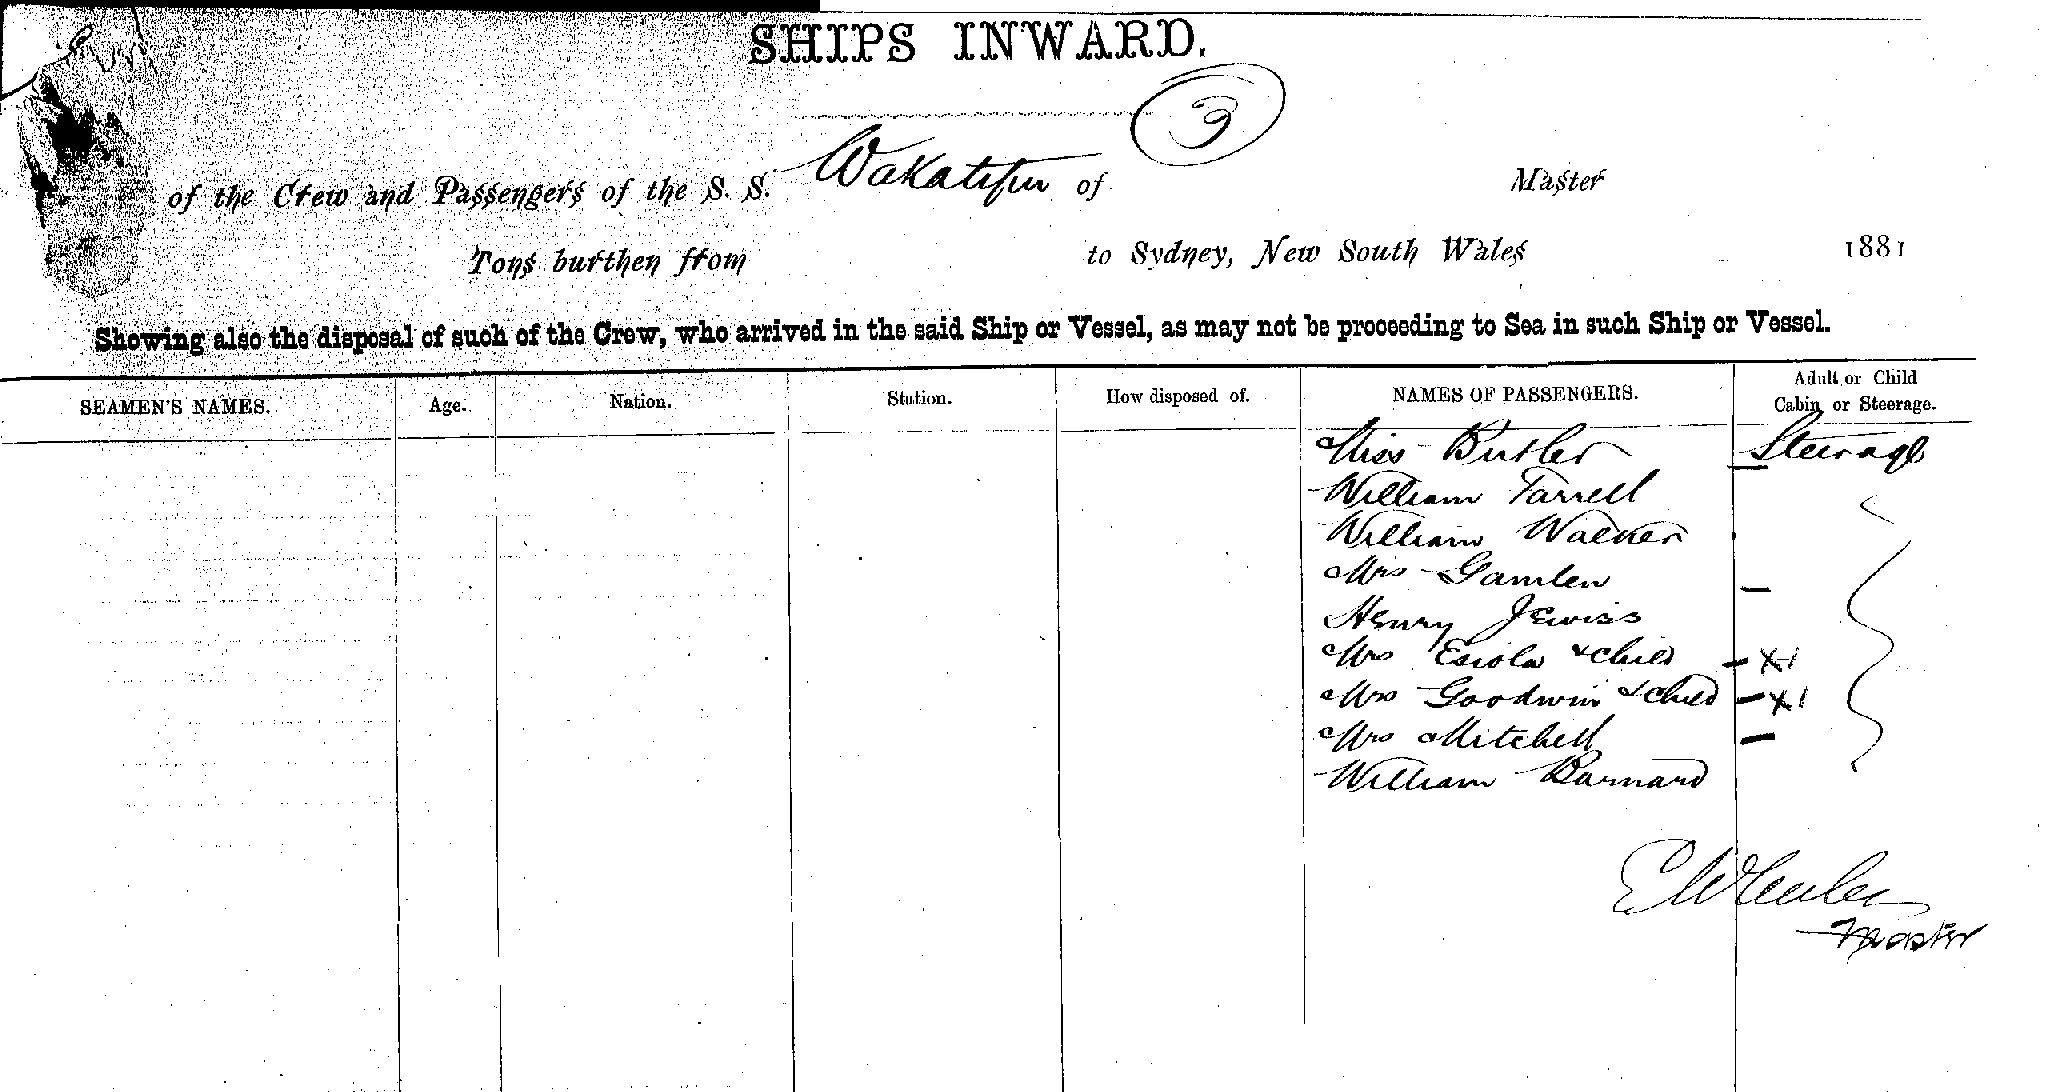 SHIPS INWARD.
3
of the Crew and Passengers of the S. S. Wakatipu of Master
Tons burthen from to Sydney, New South Wales 1881
Showing also the disposal of such of the Crew, who arrived in the said Ship or Vessel, as may not be proceeding to Sea in such Ship or Vessel.
SEAMEN'S NAMES. Age. Nation. Station. How disposed of. NAMES OF PASSENGERS. Adult or Child Cabin or Steerage.
Miss Butler Steerage
William Farrell
William Walker
Mrs Gamlen
Henry Jewiss
Mrs Esiola & child X1
Mrs Goodwin & child X1
Mrs Mitchell
William Barnard
E Wheeler
Master